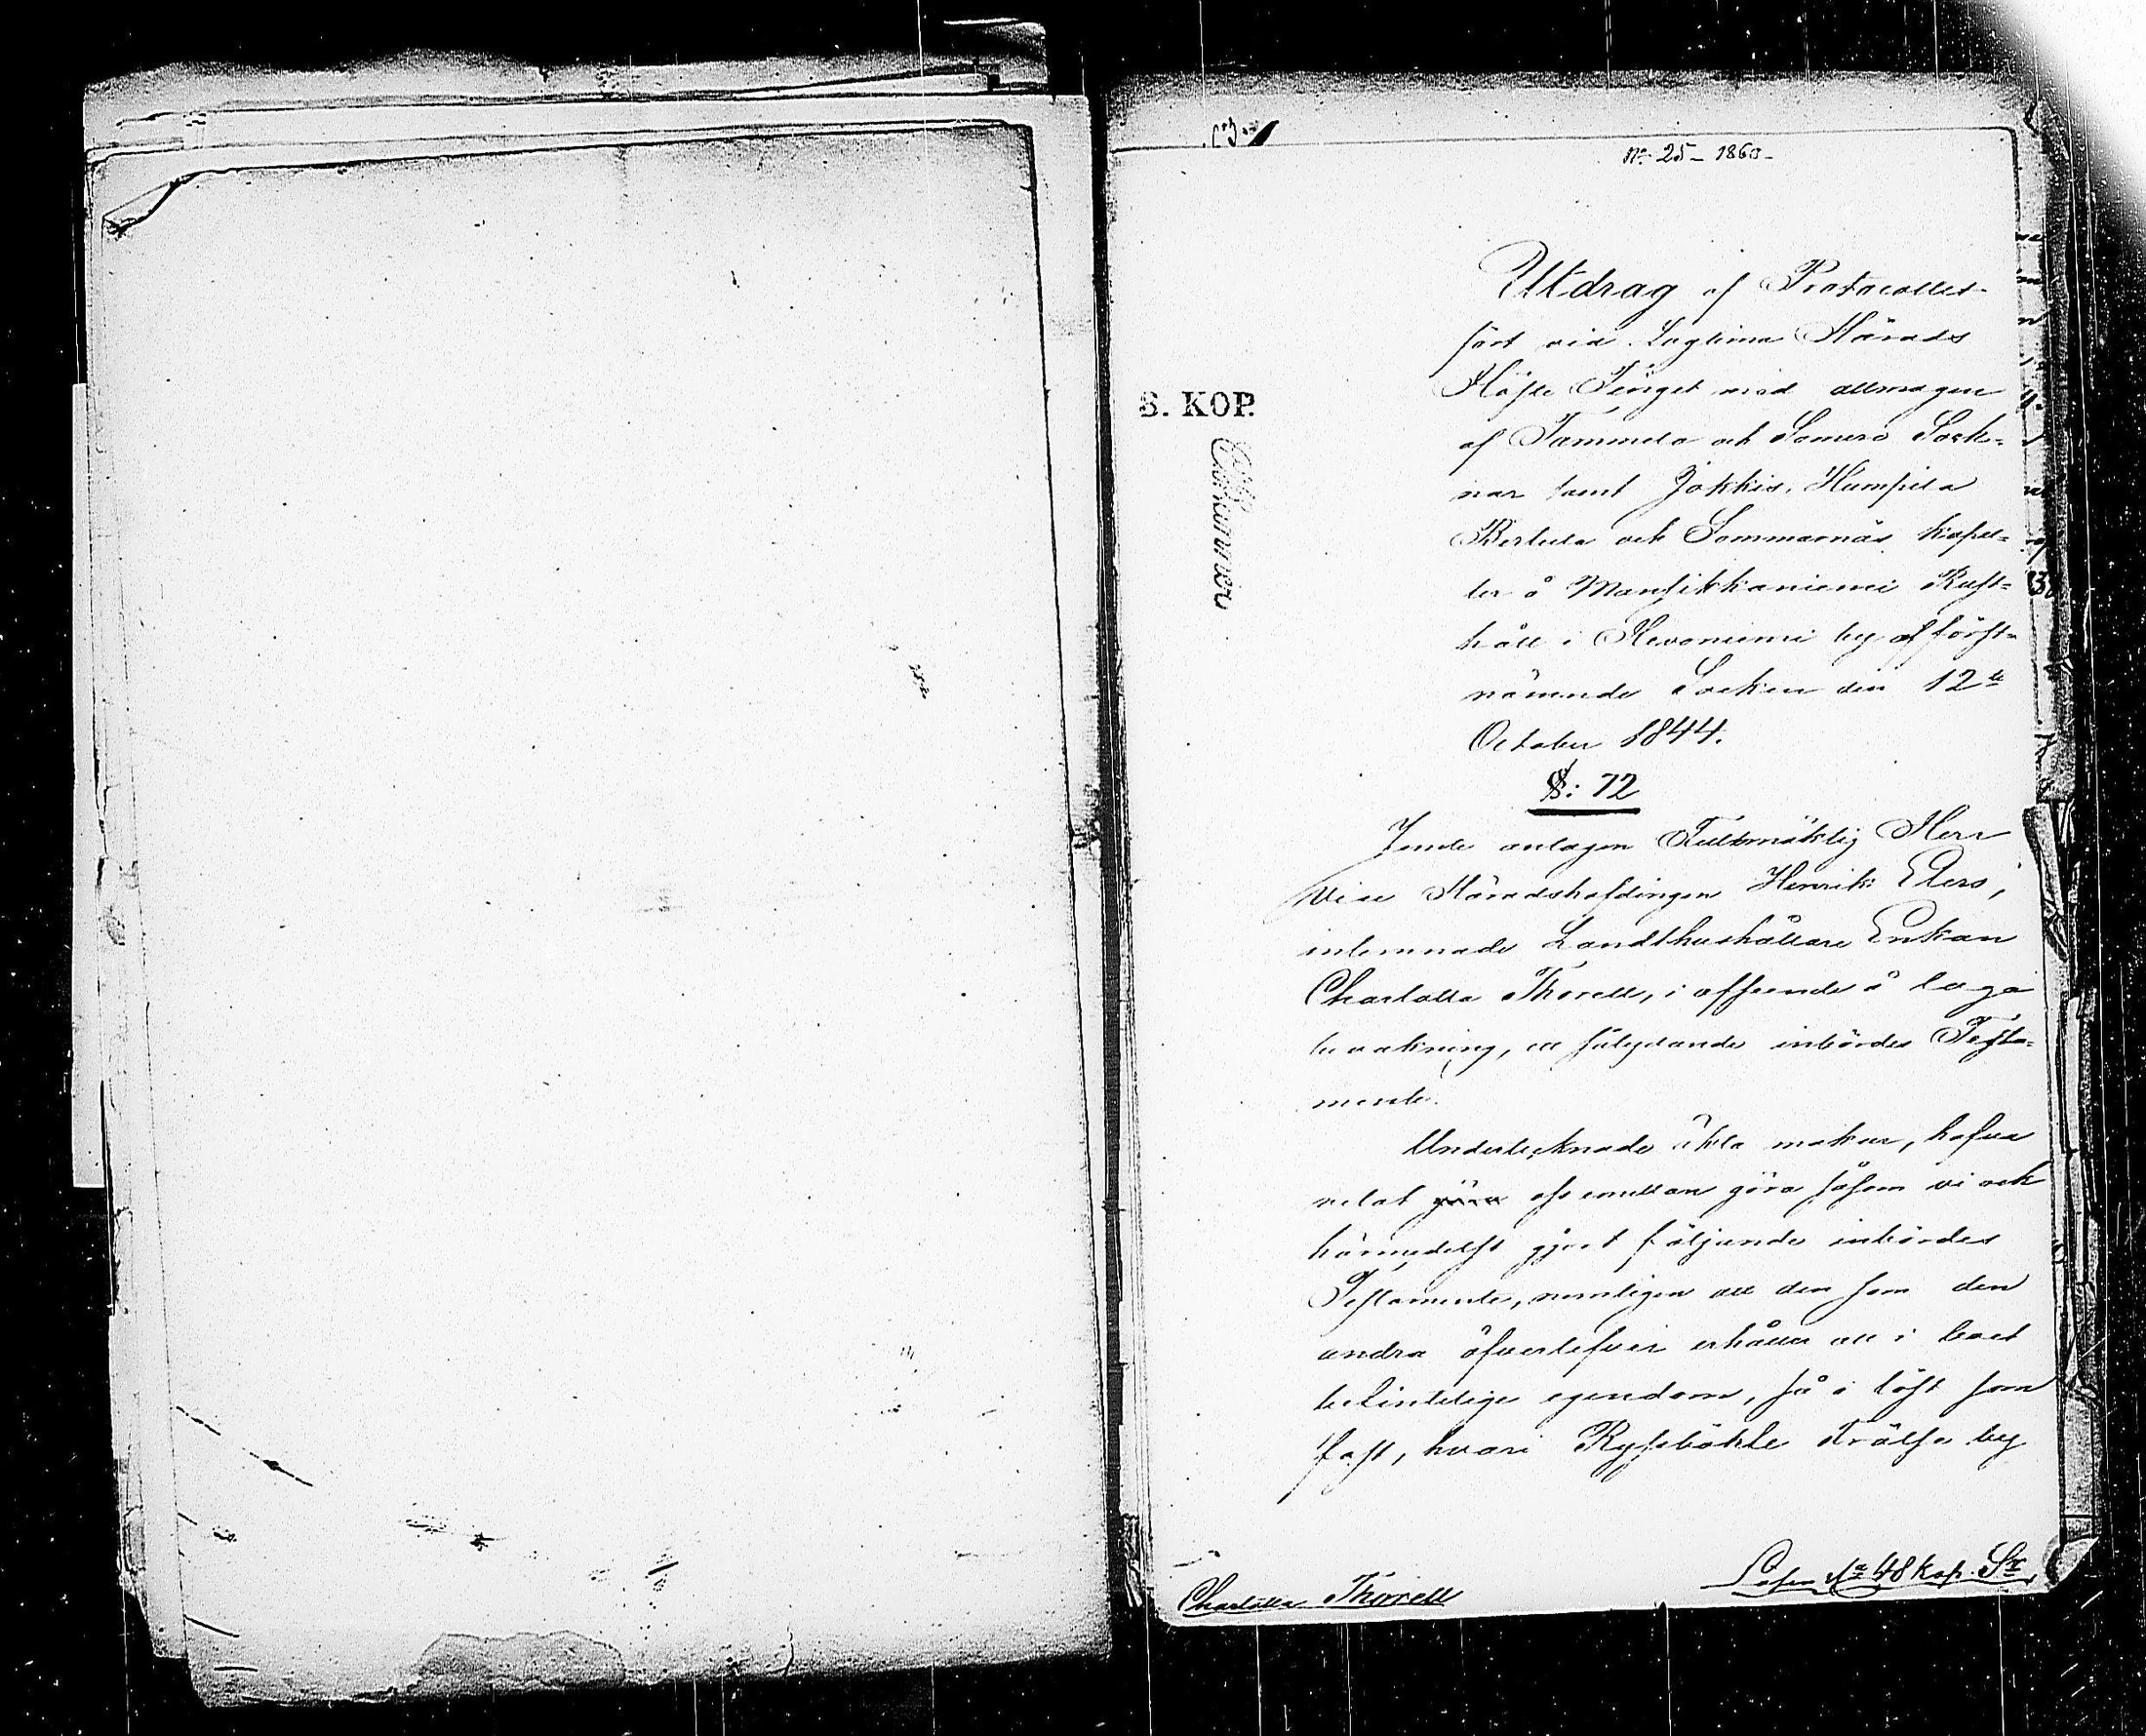 No 25 - 1860 -
Utdrag af Protocollet
fört vid Lagtima Härads
Höste Tinget med allmogen
af Tammela och Somero Sock=
nar samt Jokkis, Humpila
Pertula och Sommarnäs kapel=
ler å Mansikkaniemi Rust=
håll i Hevoniemi by af först=
nämnde Socken den 12te
October 1844.
§: 72
Jemte antagen Fullmäktig Herr
Vice Häradshöfdingen Henrik Elers,
inlemnade Landthushållare Enkan
Charlotta Thorell, i afseende å laga
bevakning, ett så lydande inbördes Testa=
mente.
Undertecknade äkta makar, hafva
velat göra oss emellan göra såsom vi ock
härmedelst gjort följande inbördes
Testamente, nemligen att den som den
andra öfverlefver erhåller all i boet
befintelige egendom, så i löst som
fast, hvari Rypsböhle Frälse by
B. KOP.
Charlotta Thorell
Lösen 48 kop. Sr